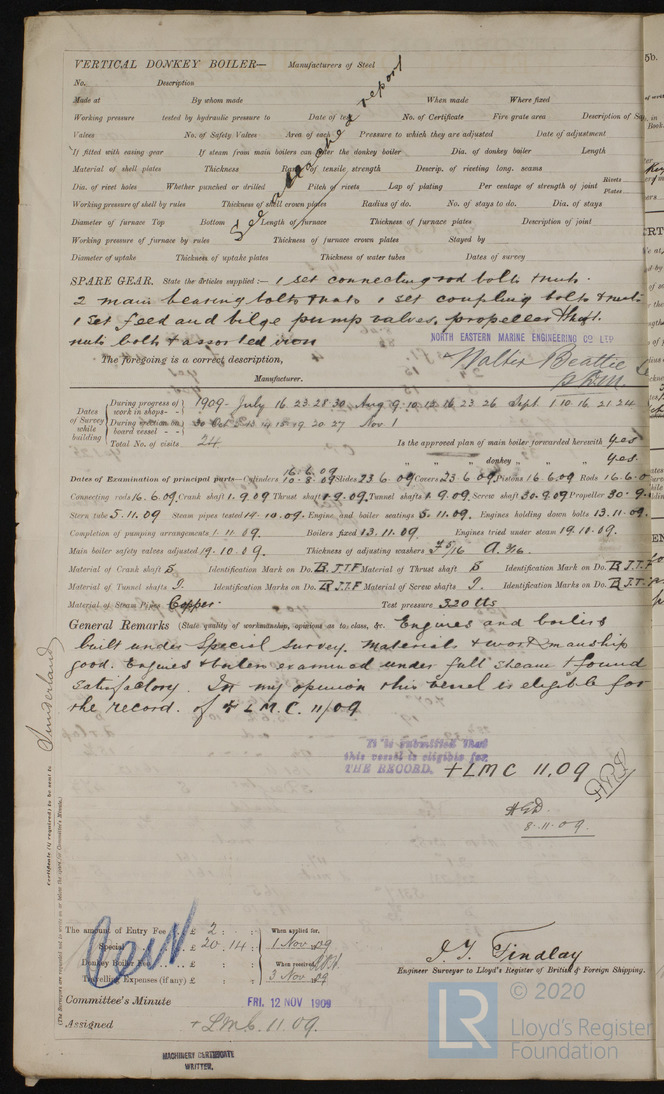 VERTICAL DONKEY BOILER— Manufacturers of Steel
No. Description
Made at By whom made When made Where fixed
Working pressure tested by hydraulic pressure to Date of test No. of Certificate Fire grate area Description of
Valves No. of Safety Valves Area of each Pressure to which they are adjusted Date of adjustment
If fitted with easing gear If steam from main boilers can enter the donkey boiler Dia. of donkey boiler Length
Material of shell plates Thickness Range of tensile strength Descrip. of riveting long. seams
Dia. of rivet holes Whether punched or drilled Pitch of rivets Lap of plating Per centage of strength of joint Rivets Plates
Working pressure of shell by rules Thickness of shell crown plates Radius of do. No. of stays to do. Dia. of stays
Diameter of furnace Top Bottom Length of furnace Thickness of furnace plates Description of joint
Working pressure of furnace by rules Thickness of furnace crown plates Stayed by
Diameter of uptake Thickness of uptake plates Thickness of water tubes Dates of survey
See attached report
SPARE GEAR. State the articles supplied:— 1 set connecting rod bolts & nuts.
2 main bearing bolts & nuts 1 set coupling bolts & nuts
1 set feed and bilge pump valves, propeller shaft.
nuts bolts & assorted iron
NORTH EASTERN MARINE ENGINEERING CO LTD
The foregoing is a correct description,
Walter Beattie
Manufacturer.
Dates of Survey while building
During progress of work in shops- - 1909- July 16 23 28 30 Aug 9 10 12 16 23 26 Sept 1 10 16 21 24
During erection on board vessel - - 30 Oct 19 20 27 Nov 1
Total No. of visits 24 Is the approved plan of main boiler forwarded herewith Yes
" " " donkey " " " Yes
Dates of Examination of principal parts—Cylinders 16.6.09 10.8.09 Slides 23.6.09 Covers 23.6.09 Pistons 16.6.09 Rods 16.6.0
Connecting rods 16.6.09 Crank shaft 1.9.09 Thrust shaft 1.9.09 Tunnel shafts 1.9.09 Screw shaft 30.9.09 Propeller 30.9.
Stern tube 5.11.09 Steam pipes tested 14.10.09 Engine and boiler seatings 5.11.09 Engines holding down bolts 13.11.09
Completion of pumping arrangements 1.11.09. Boilers fixed 13.11.09. Engines tried under steam 19.10.09.
Main boiler safety valves adjusted 19.10.09. Thickness of adjusting washers
Material of Crank shaft S Identification Mark on Do. B.J.T.F Material of Thrust shaft S Identification Mark on Do. B.J.T.F
Material of Tunnel shafts I. Identification Marks on Do. B.J.T.F Material of Screw shafts I. Identification Marks on Do. B.J.T.F
Material of Steam Pipes Copper. Test pressure 320 lbs
General Remarks (State quality of workmanship, opinions as to class, &c. Engines and boilers
built under Special Survey. Materials & workmanship
good. Engines & boilers examined under full steam & found
satisfactory. In my opinion this vessel is eligible for
the record. of + L.M.C. 11/09
It is submitted that
this vessel is eligible for
THE RECORD. + LMC 11.09
8.11.09.
Sunderland
Certificate (if required) to be sent to
(The Surveyors are requested not to write on or below the space for Committee's Minute.)
The amount of Entry Fee £ 2 : : When applied for,
Special £ 20 . 14 : 1 Nov 09
Donkey Boiler Fee £ : : When received,
Travelling Expenses (if any) £ : : 3 Nov 09
J. T. Findlay
Engineer Surveyor to Lloyd's Register of British & Foreign Shipping.
Committee's Minute FRI. 12 NOV 1909
Assigned + LMC. 11.09.
MACHINERY CERTIFICATE
WRITTEN.
LR © 2020
Lloyd's Register
Foundation